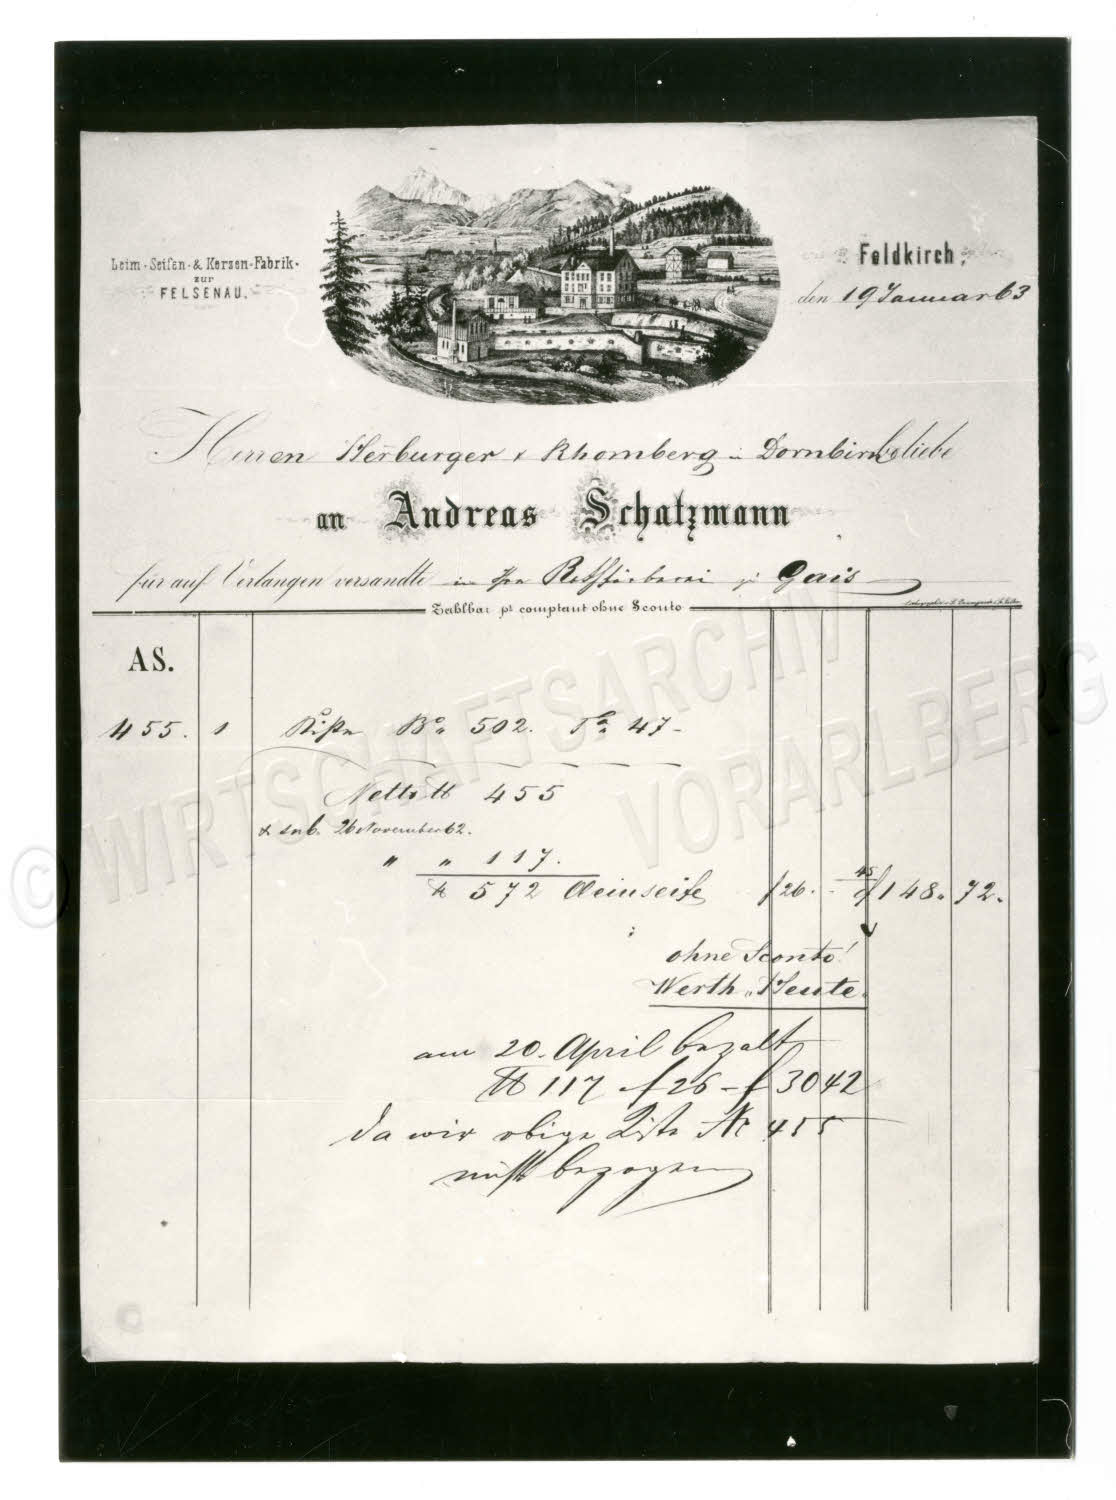 Leim-Seifen-& Kerzen-Fabrik
zur
FELSENAU.
Feldkirch,
den 19 Januar 63
Herren Herburger & Rhomberg in Dornbirn beliebe
an Andreas Schatzmann
für auf Verlangen versandte in Ihre Rothfärberei zu Gais
Zahlbar pr comptant ohne Sconto
AS.
455. 1 Kiste Bo 502. Ta 47-
Netto ℔ 455
26 November 62.
" " 117.
℔ 572 Oleinseife f 26. - 45 f 148. 72.
ohne Sconto!
Werth "Heute"
am 20. April bezalt
℔ 117 f 26 - f 30 42
da wir obige Kiste No 455
nicht bezogen
© WIRTSCHAFTSARCHIV
VORARLBERG